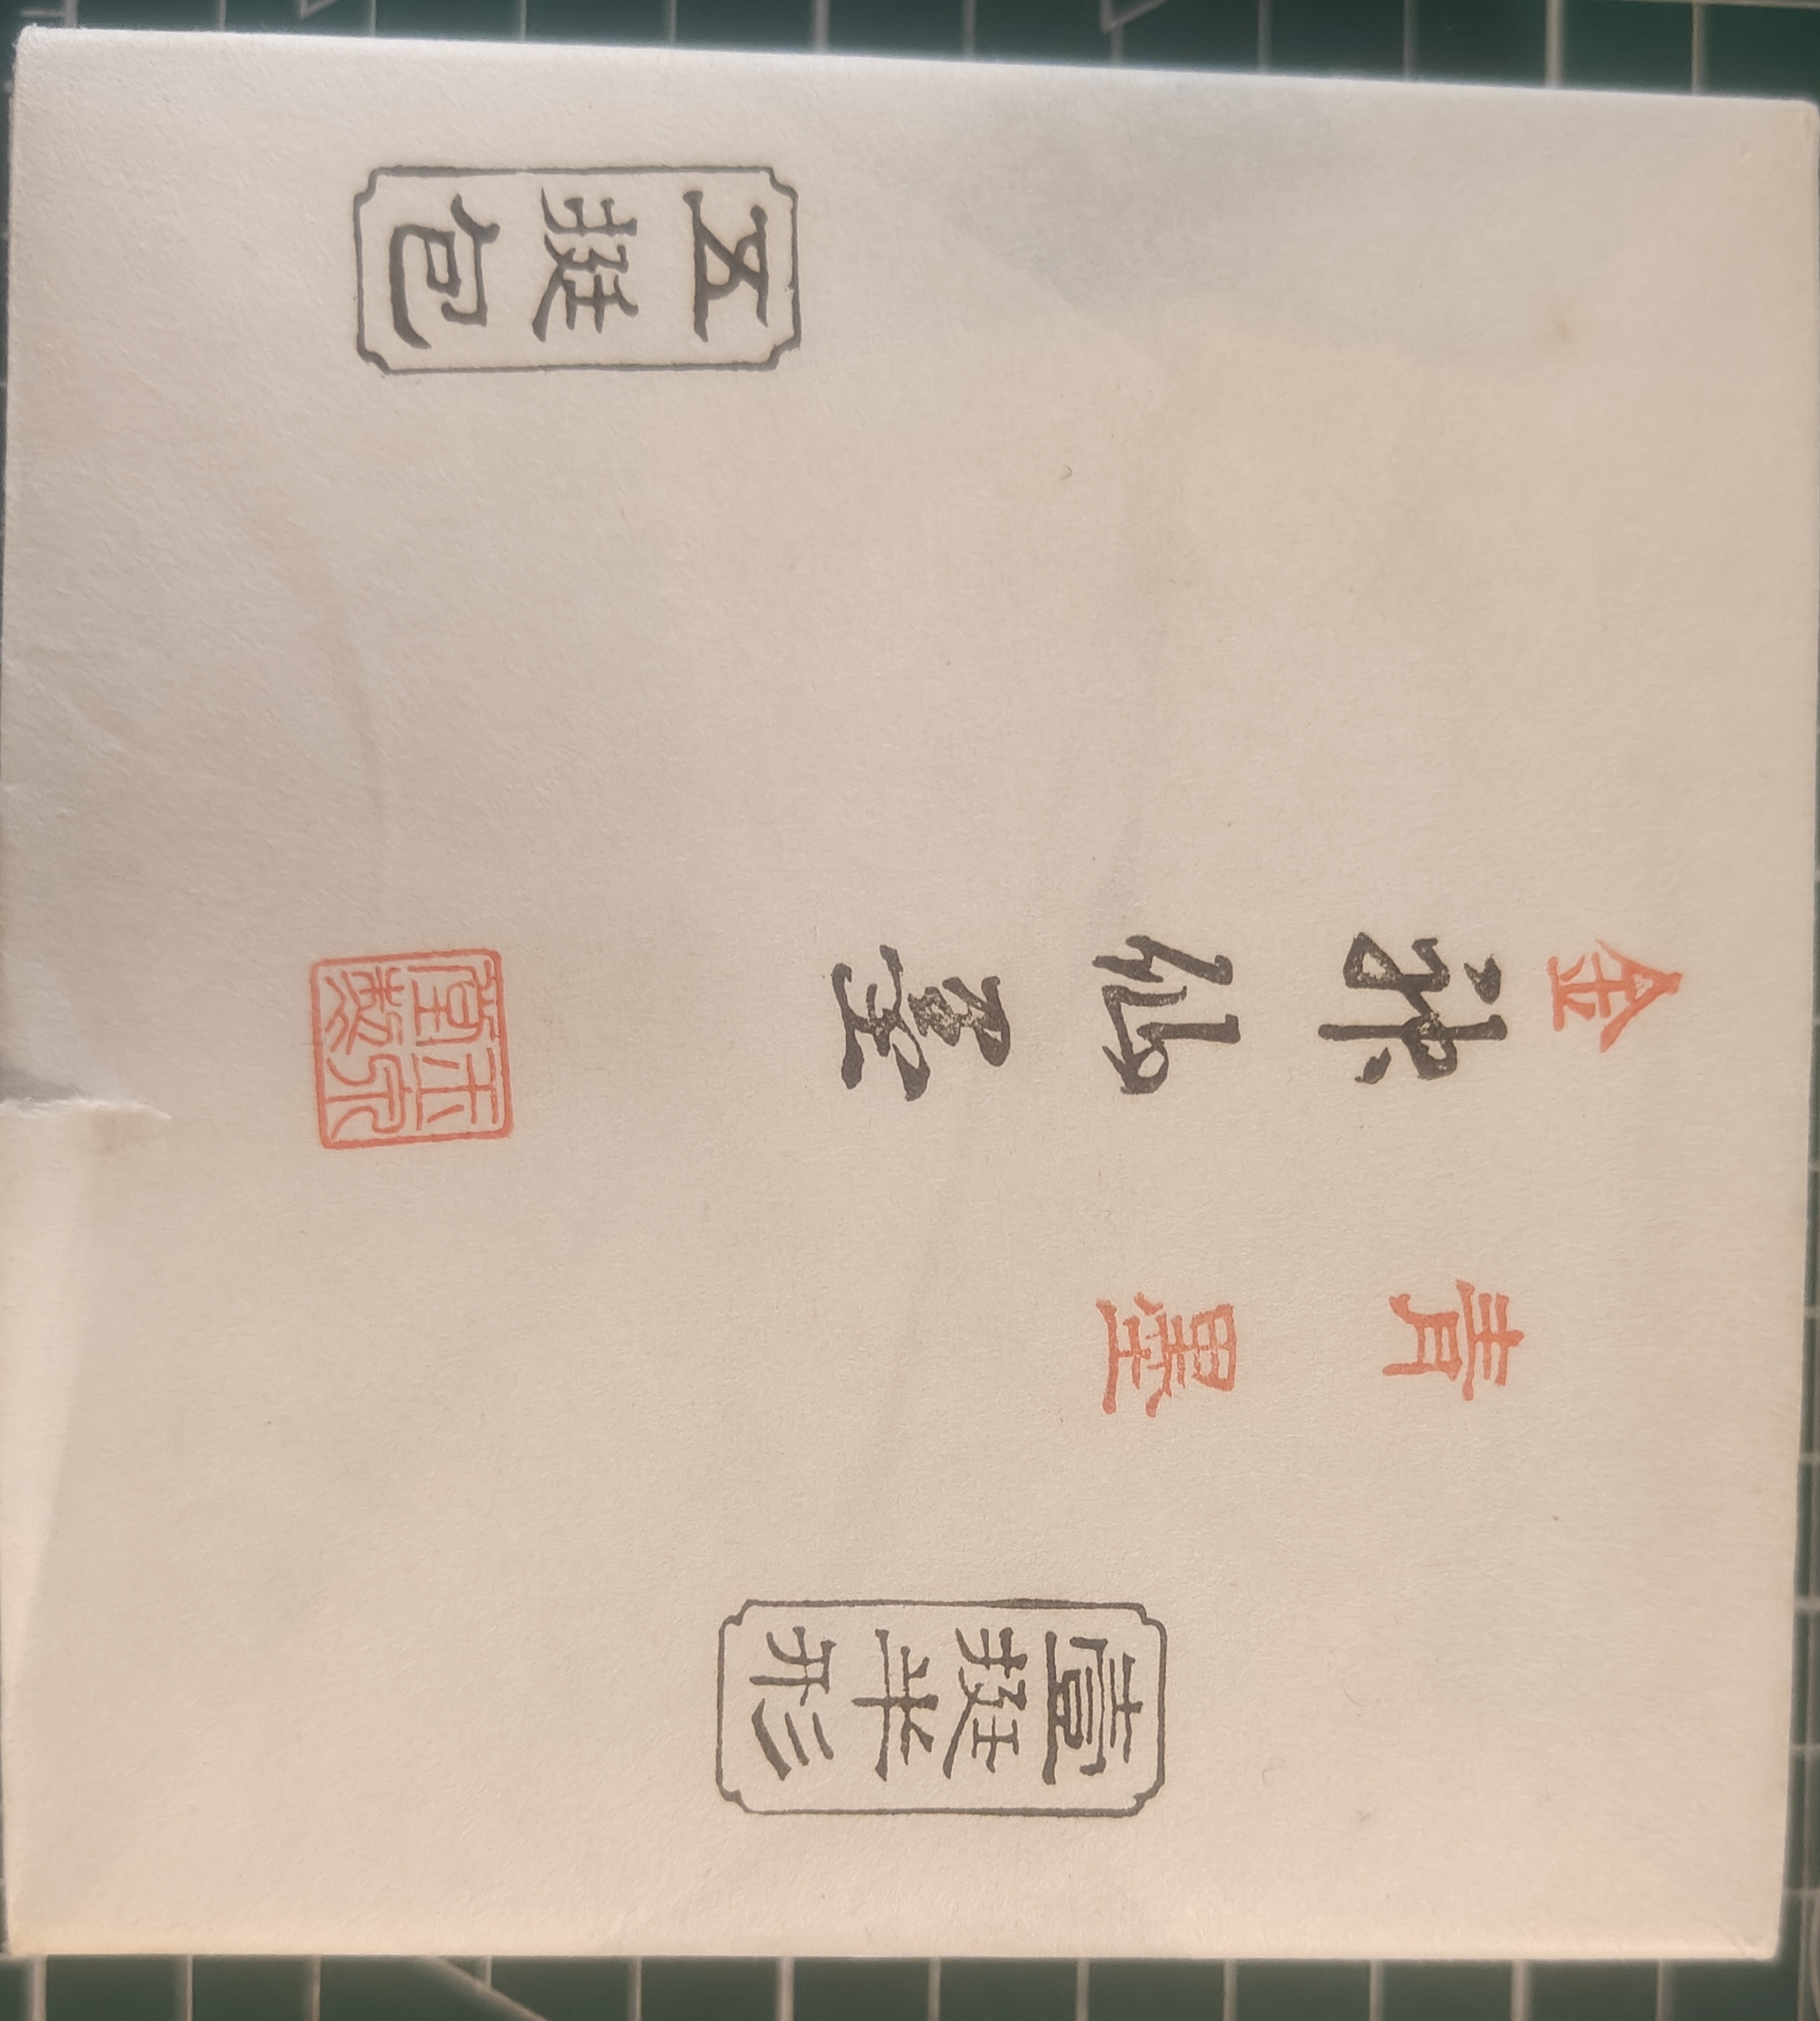 壹挺半形
青墨
金
神仙墨
玉泉
堂製
五挺包